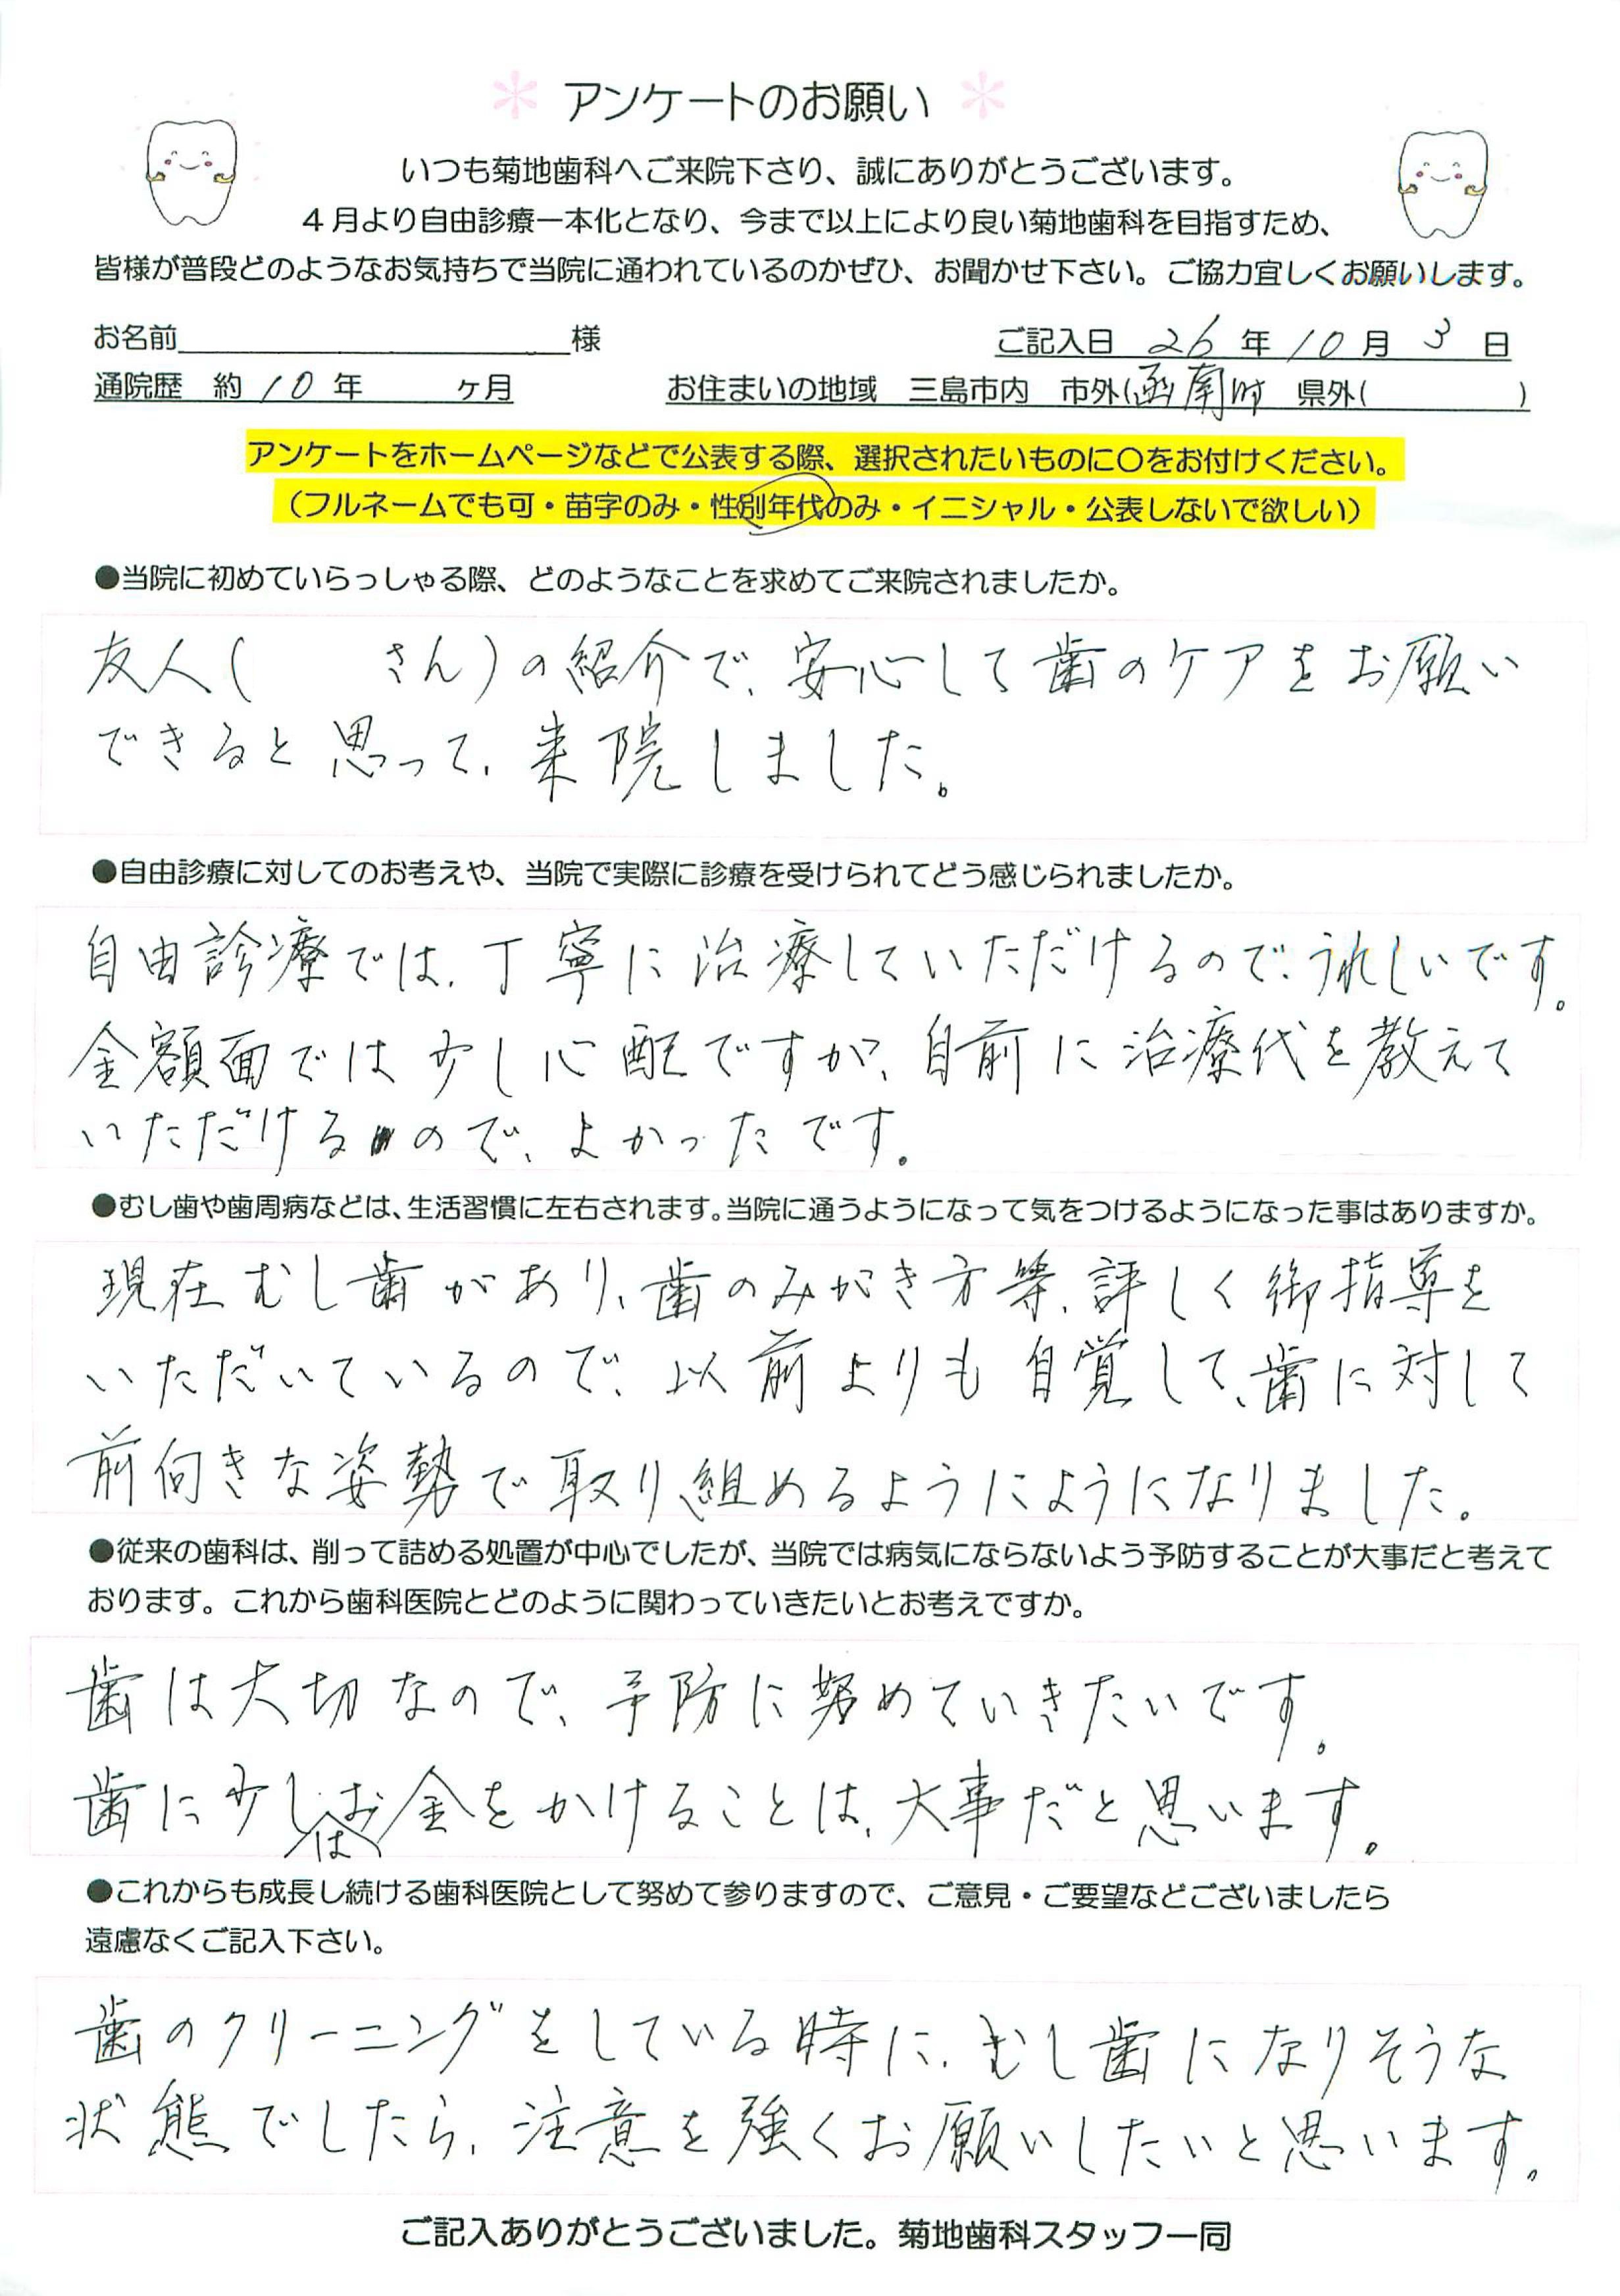 アンケートのお願い
いつも菊地歯科へご来院下さり、誠にありがとうございます。
4月より自由診療一本化となり、今まで以上により良い菊地歯科を目指すため、
皆様が普段どのようなお気持ちで当院に通われているのかぜひ、お聞かせ下さい。ご協力宜しくお願いします。
お名前 様 ご記入日 26年10月3日
通院歴 約10年 ヶ月 お住まいの地域 三島市内 市外(函南町 県外( )
アンケートをホームページなどで公表する際、選択されたいものに〇をお付けください。
（フルネームでも可・苗字のみ・性別年代のみ・イニシャル・公表しないで欲しい）
●当院に初めていらっしゃる際、どのようなことを求めてご来院されましたか。
友人( さん)の紹介で、安心して歯のケアをお願い
できると思って、来院しました。
●自由診療に対してのお考えや、当院で実際に診療を受けられてどう感じられましたか。
自由診療では、丁寧に治療していただけるので、うれしいです。
金額面では少し心配ですが、自前に治療代を教えて
いただけるので、よかったです。
●むし歯や歯周病などは、生活習慣に左右されます。当院に通うようになって気をつけるようになった事はありますか。
現在むし歯があり、歯のみがき方等、詳しく御指導を
いただいているので、以前よりも自覚して、歯に対して
前向きな姿勢で取り組めるようにようになりました。
●従来の歯科は、削って詰める処置が中心でしたが、当院では病気にならないよう予防することが大事だと考えて
おります。これから歯科医院とどのように関わっていきたいとお考えですか。
歯は大切なので、予防に努めていきたいです。
歯に少しはお金をかけることは、大事だと思います。
●これからも成長し続ける歯科医院として努めて参りますので、ご意見・ご要望などございましたら
遠慮なくご記入下さい。
歯のクリーニングをしている時に、むし歯になりそうな
状態でしたら、注意を強くお願いしたいと思います。
ご記入ありがとうございました。菊地歯科スタッフ一同